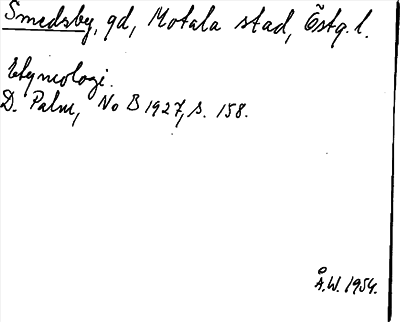 Smedsby, gd, Motala stad, Östg. l.
Etymologi.
D. Palm, No B 1927, s. 158.
Å.W. 1954.